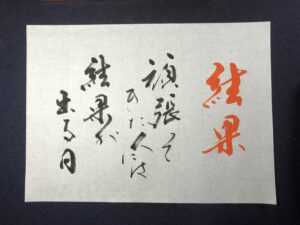 結果
頑張って
きた人には
結果が
出る月